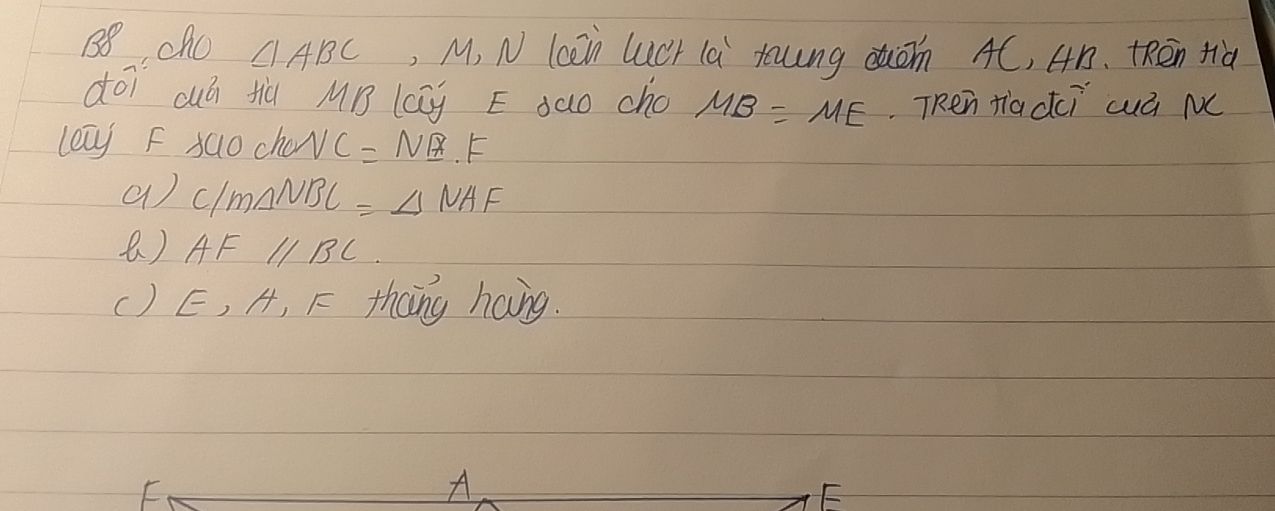 B8, cho △ABC, M, N lần lượt là trung điểm AC, AB. TRên tia
đối của tia MB lấy E sao cho MB = ME. TRên tia đối của NC
lấy F sao cho NC = N.F
a) c/m △NBC = △ NAF
b) AF // BC.
c) E, A, F thẳng hàng.
F A E